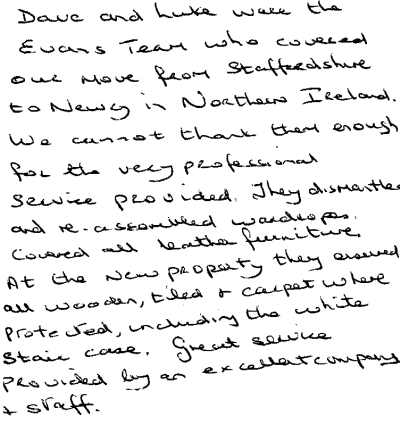 Dave and Luke were the
Evans Team who covered
our move from Staffordshire
to Newry in Northern Ireland.
We cannot thank them enough
for the very professional
service provided. They dismantled
and re-assembled wardropes.
Covered all leather furniture.
At the new property they ensured
all wooden, tiled + carpet where
protected, including the white
stair case. Great service
provided by an excellent company
+ staff.